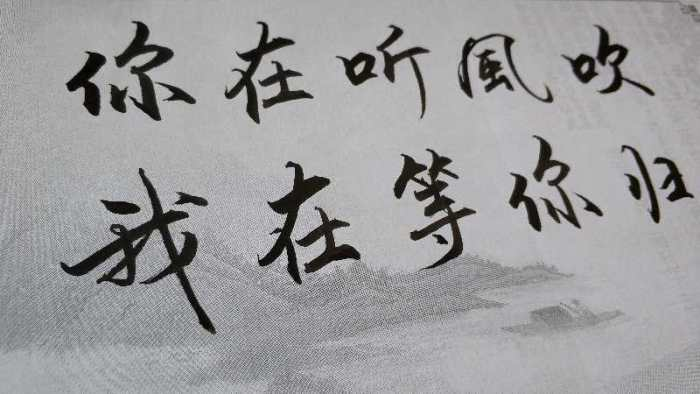 你在听風吹
我在等你归